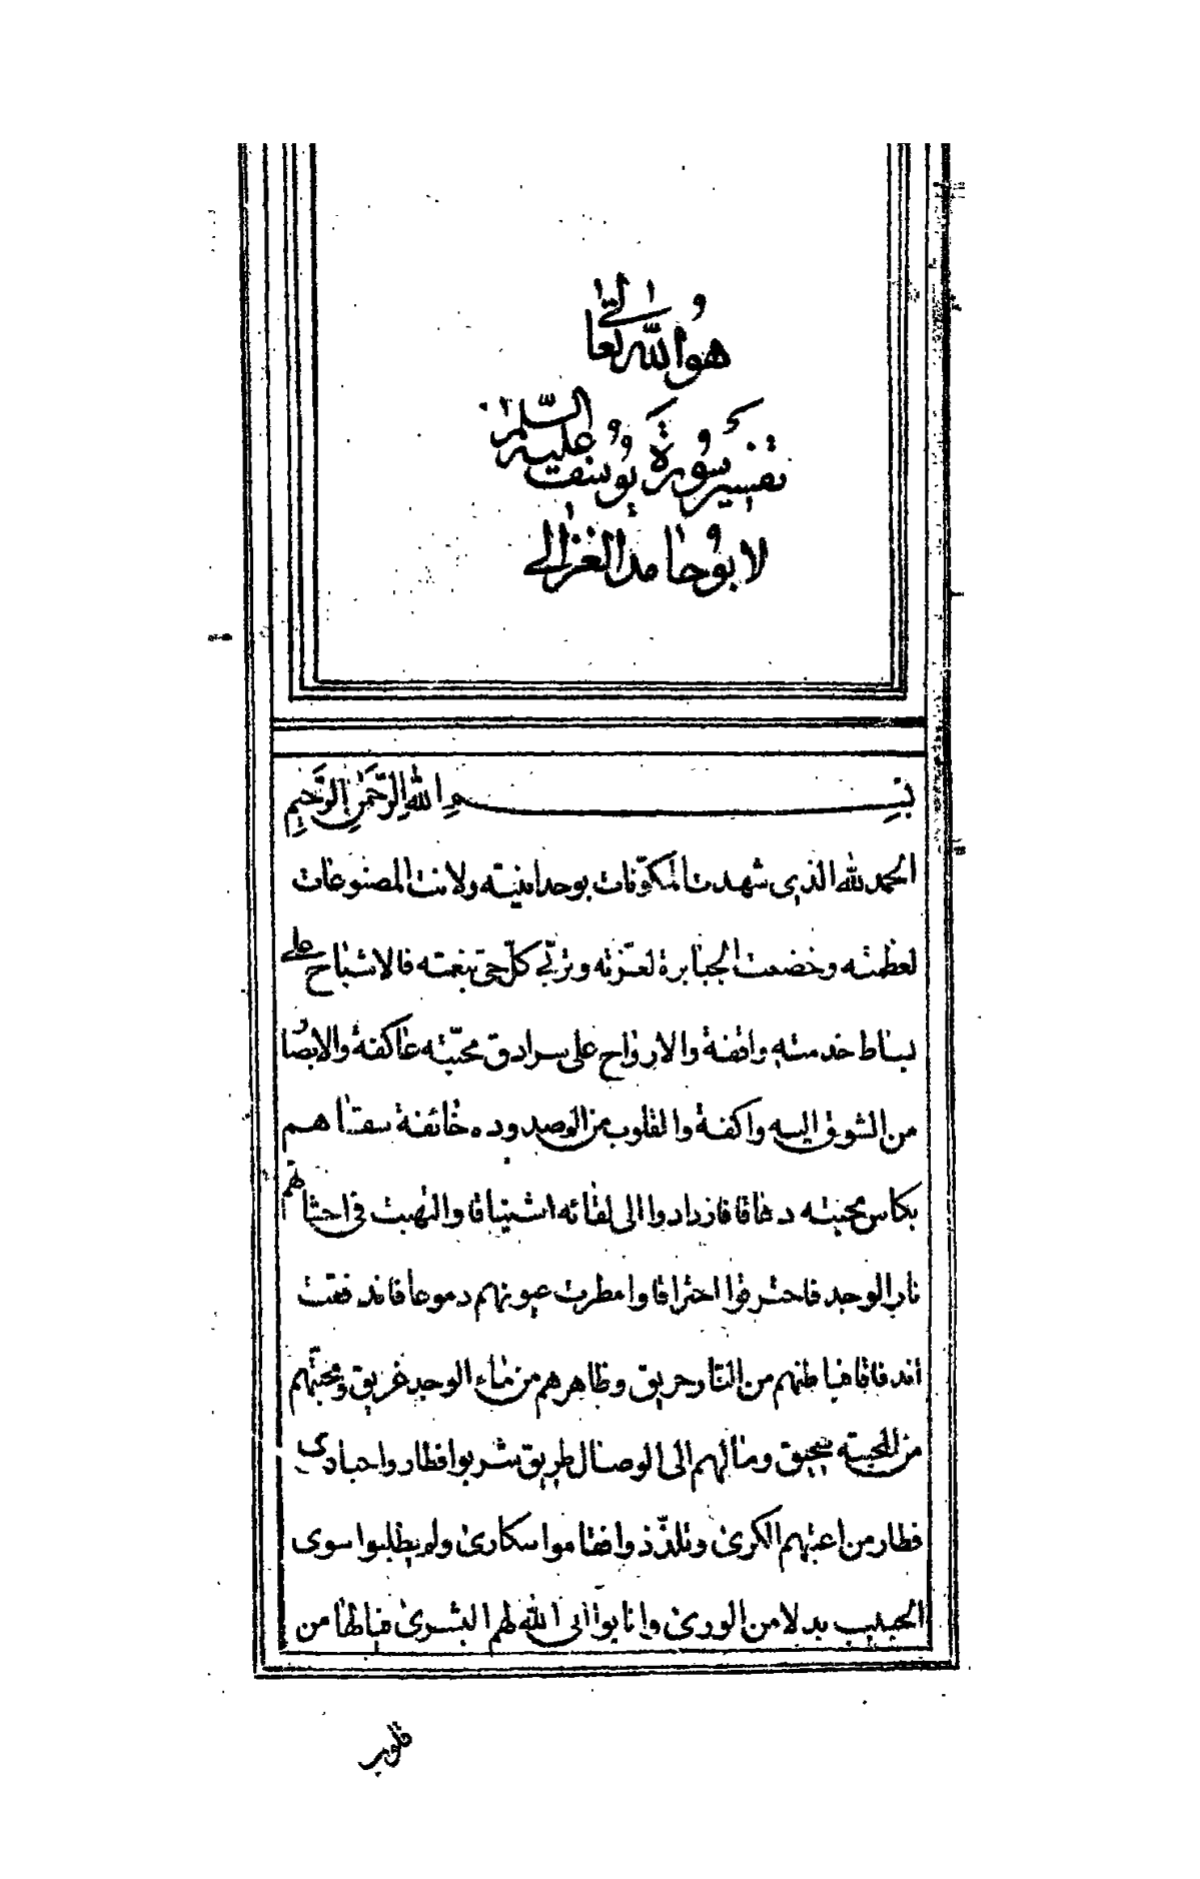 هو الله تعالى
تفسير سورة يوسف عليه السلم
لابو حامد الغزالي
بسم الله الرحمن الرحيم
الحمد لله الذي شهدت المكوّنات بوحدانيته ولانت المصنوعات
لعظمته وخضعت الجبابرة لعزّته وتربّى كلّ حيّ بنعمته فالاشباح على
بساط خدمته واقفة والارواح على سرادق محبّته عاكفة والابصار
من الشوق اليه واكفة والقلوب من الوصدوده خائفة سقاهم
بكاس محبته دهاقا فازدادوا الى لقائه اشتياقا والتهبت في احشائهم
نار الوجد فاحترقوا احتراقا وامطرت عيونهم دموعا فاندفقت
اندفاقا فباطنهم من النار حريق وظاهرهم من ماء الوجد غريق ومحبتهم
من المحبته سحيق ومالهم الى الوصال طريق شربوا
فطار من اعينهم الكرى وتلذّذوا فقاموا سكارى ولم يطلبوا سوى
الحبيب بدلا من الورى وانابوا الى الله لهم البشرى فيالها من
قلوب